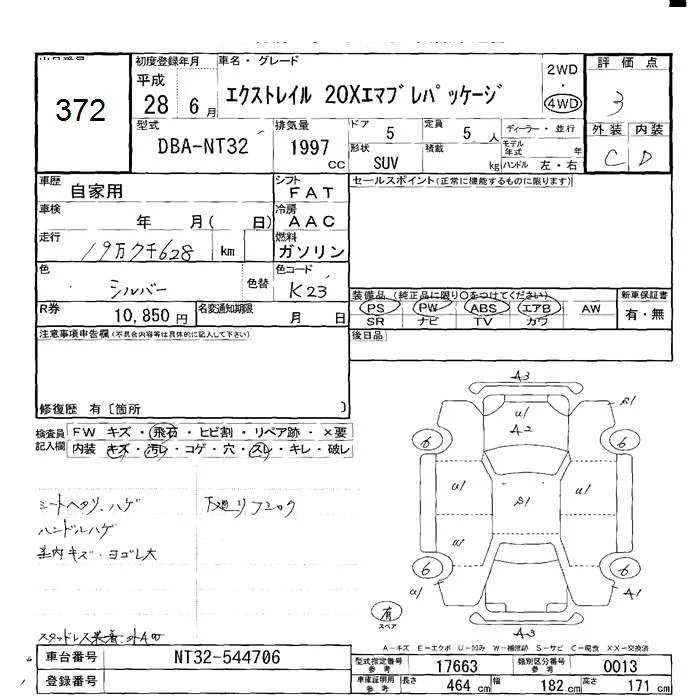 372
初度登録年月
平成
28 6月
車名・グレード
エクストレイル 20Xエマブレパッケージ
2WD
・
4WD
評価点
3
外装 内装
C D
型式
DBA-NT32
排気量
1997
CC
ドア
5
形状
SUV
定員
5人
積載
kg
ディーラー・並行
モデル年式
年
ハンドル 左・右
車歴
自家用
シフト
FAT
車検
年 月( 日)
冷房
AAC
走行
19万7千628 km
燃料
ガソリン
色
シルバー
色替
色コード
K23
R券
10,850円
名変通知期限
月 日
セールスポイント(正常に機能するものに限ります)
装備品 (純正品に限り○をつけてください)
PS PW ABS エアB AW
SR ナビ TV カワ
新車保証書
有・無
後日品
注意事項申告欄(不具合内容等は具体的に記入して下さい)
修復歴 有〔箇所 〕
検査員記入欄
FW キズ・飛石・ヒビ割・リペア跡・×要
内装 キズ・汚レ・コゲ・穴・スレ・キレ・破レ
シートヘタリ、ハゲ
下廻りフ
ハンドルハゲ
キズ・ヨゴレ大
スタッドレス装着
A3
U1
A2
S1
6
6
U1
S1
U1
U1
6
6
U1
A1
A3
有
スペア
A-キズ E-エクボ U-凹ミ W-補修跡 S-サビ C-腐食 XX-交換済
車台番号
NT32-544706
登録番号
型式指定番号
参考
17663
類別区分番号
参考
0013
車庫証明用
参考
長さ 464 cm 幅 182 cm 高さ 171 cm